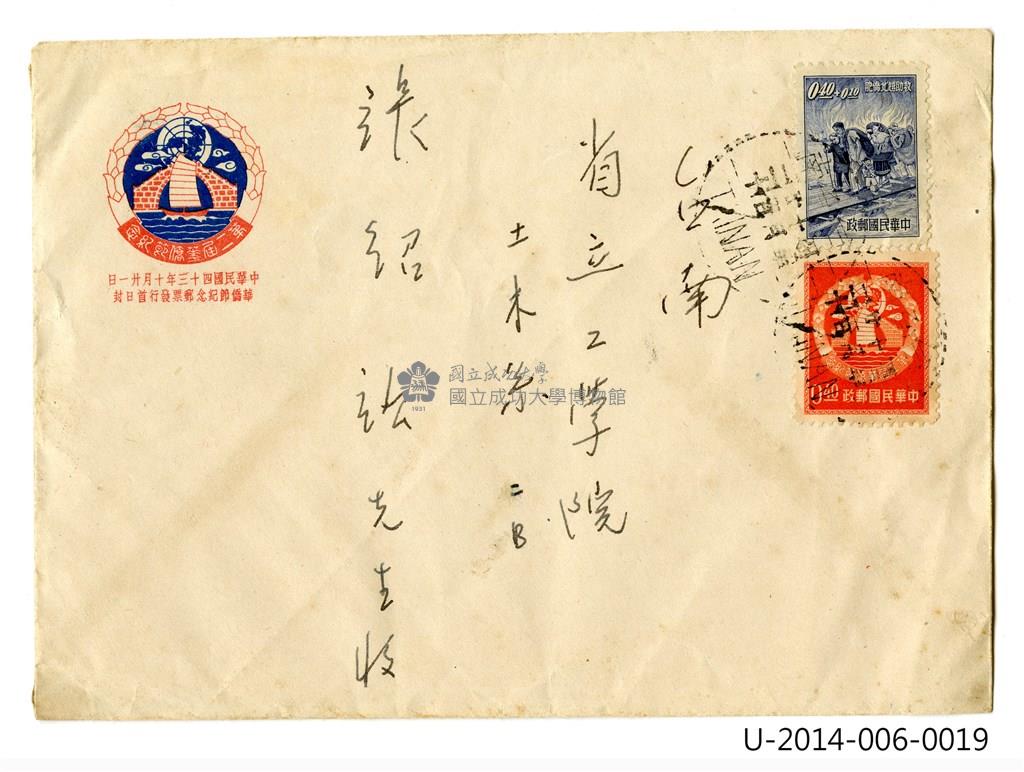 台南
省立工學院
土木系
二B
張紹訟先生收
第二屆華僑節紀念
中華民國四十三年十月廿一日
華僑節紀念郵票發行首日封
0.40+0.10
救助越北僑胞
中華民國郵政
0.40
中華民國郵政
TAINAN
國立成功大學
國立成功大學博物館
1931
U-2014-006-0019